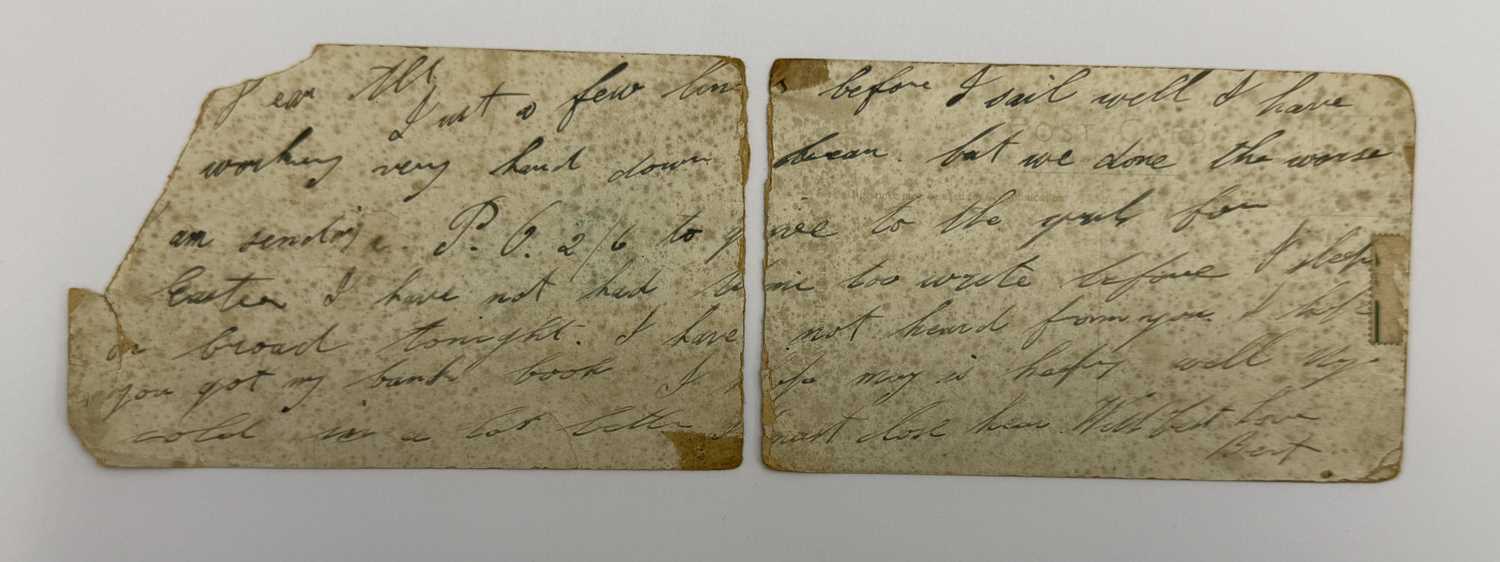 Dear All
Just a few lines before I sail well I have
working very hard down but we done the worse
am sending P.O. 2/6 to to the girls for
Easter I have not had time too write before I sleep
on broad tonight. I have not heard from you. I
you got my bank book I hope may is happy well my
cold is a lot better I must close hear. With best love
Bert
POST CARD